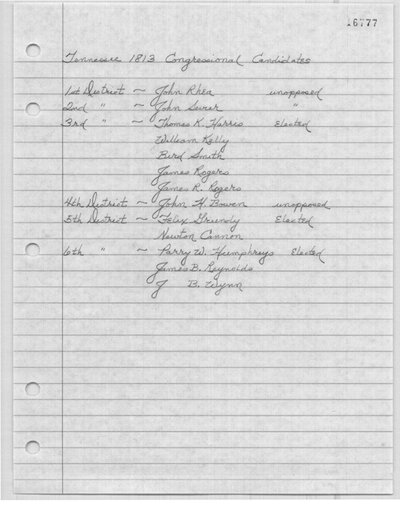 16777
Tennessee 1813 Congressional Candidates
1st District ~ John Rhea unopposed
2nd " ~ John Sevier "
3rd " ~ Thomas K. Harris Elected
William Kelly
Bird Smith
James Rogers
James R. Rogers
4th District ~ John H. Bowen unopposed
5th District ~ Felix Grundy Elected
Newton Cannon
6th " ~ Parry W. Humphreys Elected
James B. Reynolds
J B. Wynn